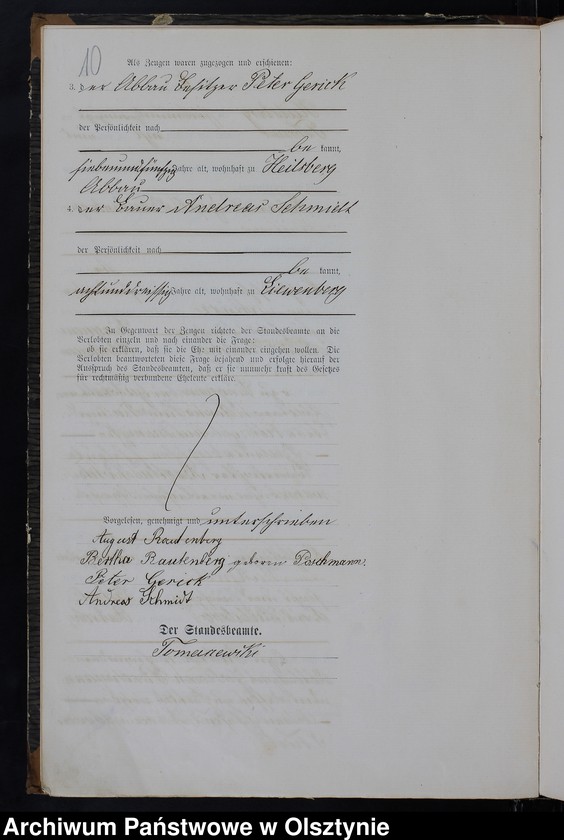 10
Als Zeugen waren zugezogen und erschienen:
3. der Abbau Besitzer Peter Gerick
der Persönlichkeit nach
be kannt,
siebenundfünfzig Jahre alt, wohnhaft zu Heilsberg
Abbau
4. der Bauer Andreas Schmidt
der Persönlichkeit nach
be kannt,
achtunddreissig Jahre alt, wohnhaft zu Liewenberg
In Gegenwart der Zeugen richtete der Standesbeamte an die
Verlobten einzeln und nach einander die Frage:
ob sie erklären, daß sie die Ehe mit einander eingehen wollen. Die
Verlobten beantworteten diese Frage bejahend und erfolgte hierauf der
Ausspruch des Standesbeamten, daß er sie nunmehr kraft des Gesetzes
für rechtmäßig verbundene Eheleute erkläre.
Vorgelesen, genehmigt und unterschrieben
August Rautenberg
Bertha Rautenberg geboren Poschmann.
Peter Gerick
Andreas Schmidt
Der Standesbeamte.
Tomanewski
Archiwum Państwowe w Olsztynie